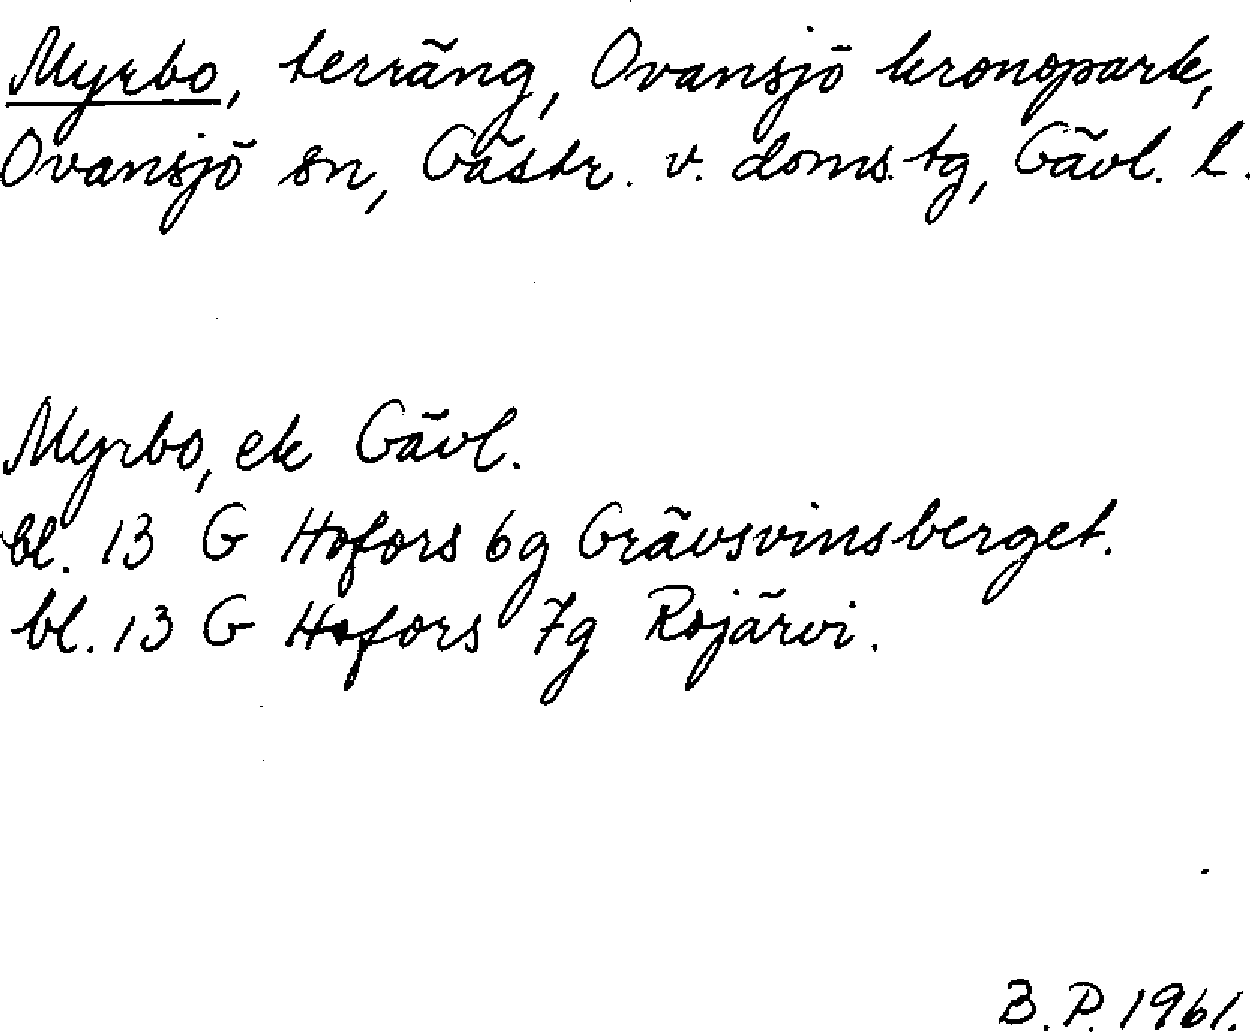 Myrbo, terräng, Ovansjö kronopark,
Ovansjö sn, Gästr. v. doms. tg, Gävl. l.
Myrbo, ek Gävl.
bl. 13 G Hofors 6g Grävsvinsberget.
bl. 13 G Hofors 7g Rojärvi.
B. P. 1961.